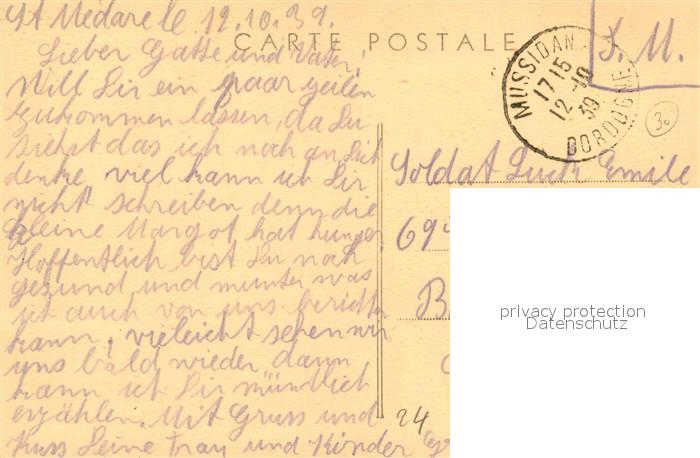 St Médard le 12.10.39.
CARTE POSTALE
F. M.
Lieber Gatte und Vater,
Will Dir ein paar zeilen
zukommen lassen, da Du
siehst das ich noch an Dich
denke, viel kann ich Dir
nicht schreiben denn die
kleine Margot hat hunger
Hoffentlich bist Du noch
gezund und munter was
ich auch von uns berichten
kann, vieleicht sehen wir
uns bald wieder, dann
kann ich Dir mündlich
erzählen. Mit Gruss und
Kuss Deine Frau und Kinder
MUSSIDAN
17 15
12 -10
39
DORDOGNE
30
Soldat Luck Emile
69
B
24
privacy protection
Datenschutz